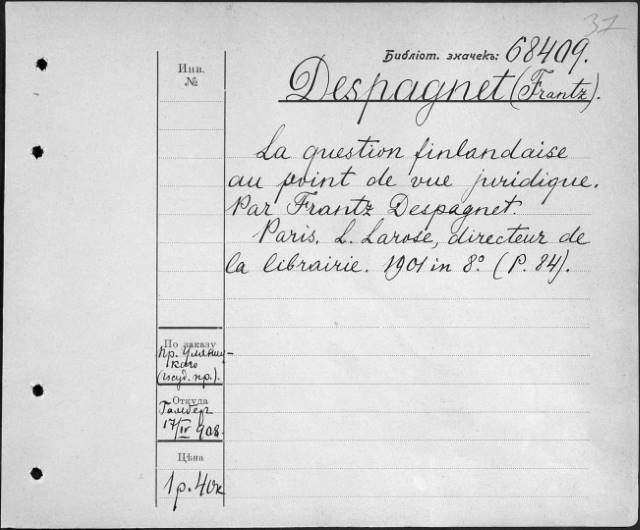 37
Библіот. значекъ: 68409.
Инв.
№
Despagnet (Frantz).
La question finlandaise
au point de vue juridique.
Par Frantz Despagnet.
Paris. L. Larose, directeur de
la librairie. 1901 in 8º. (P. 84).
По заказу
Пр. Уляниц-
каго
(госуд. пр.).
Откуда
Гамбер
17/IV 908.
Цѣна
1 р. 40к